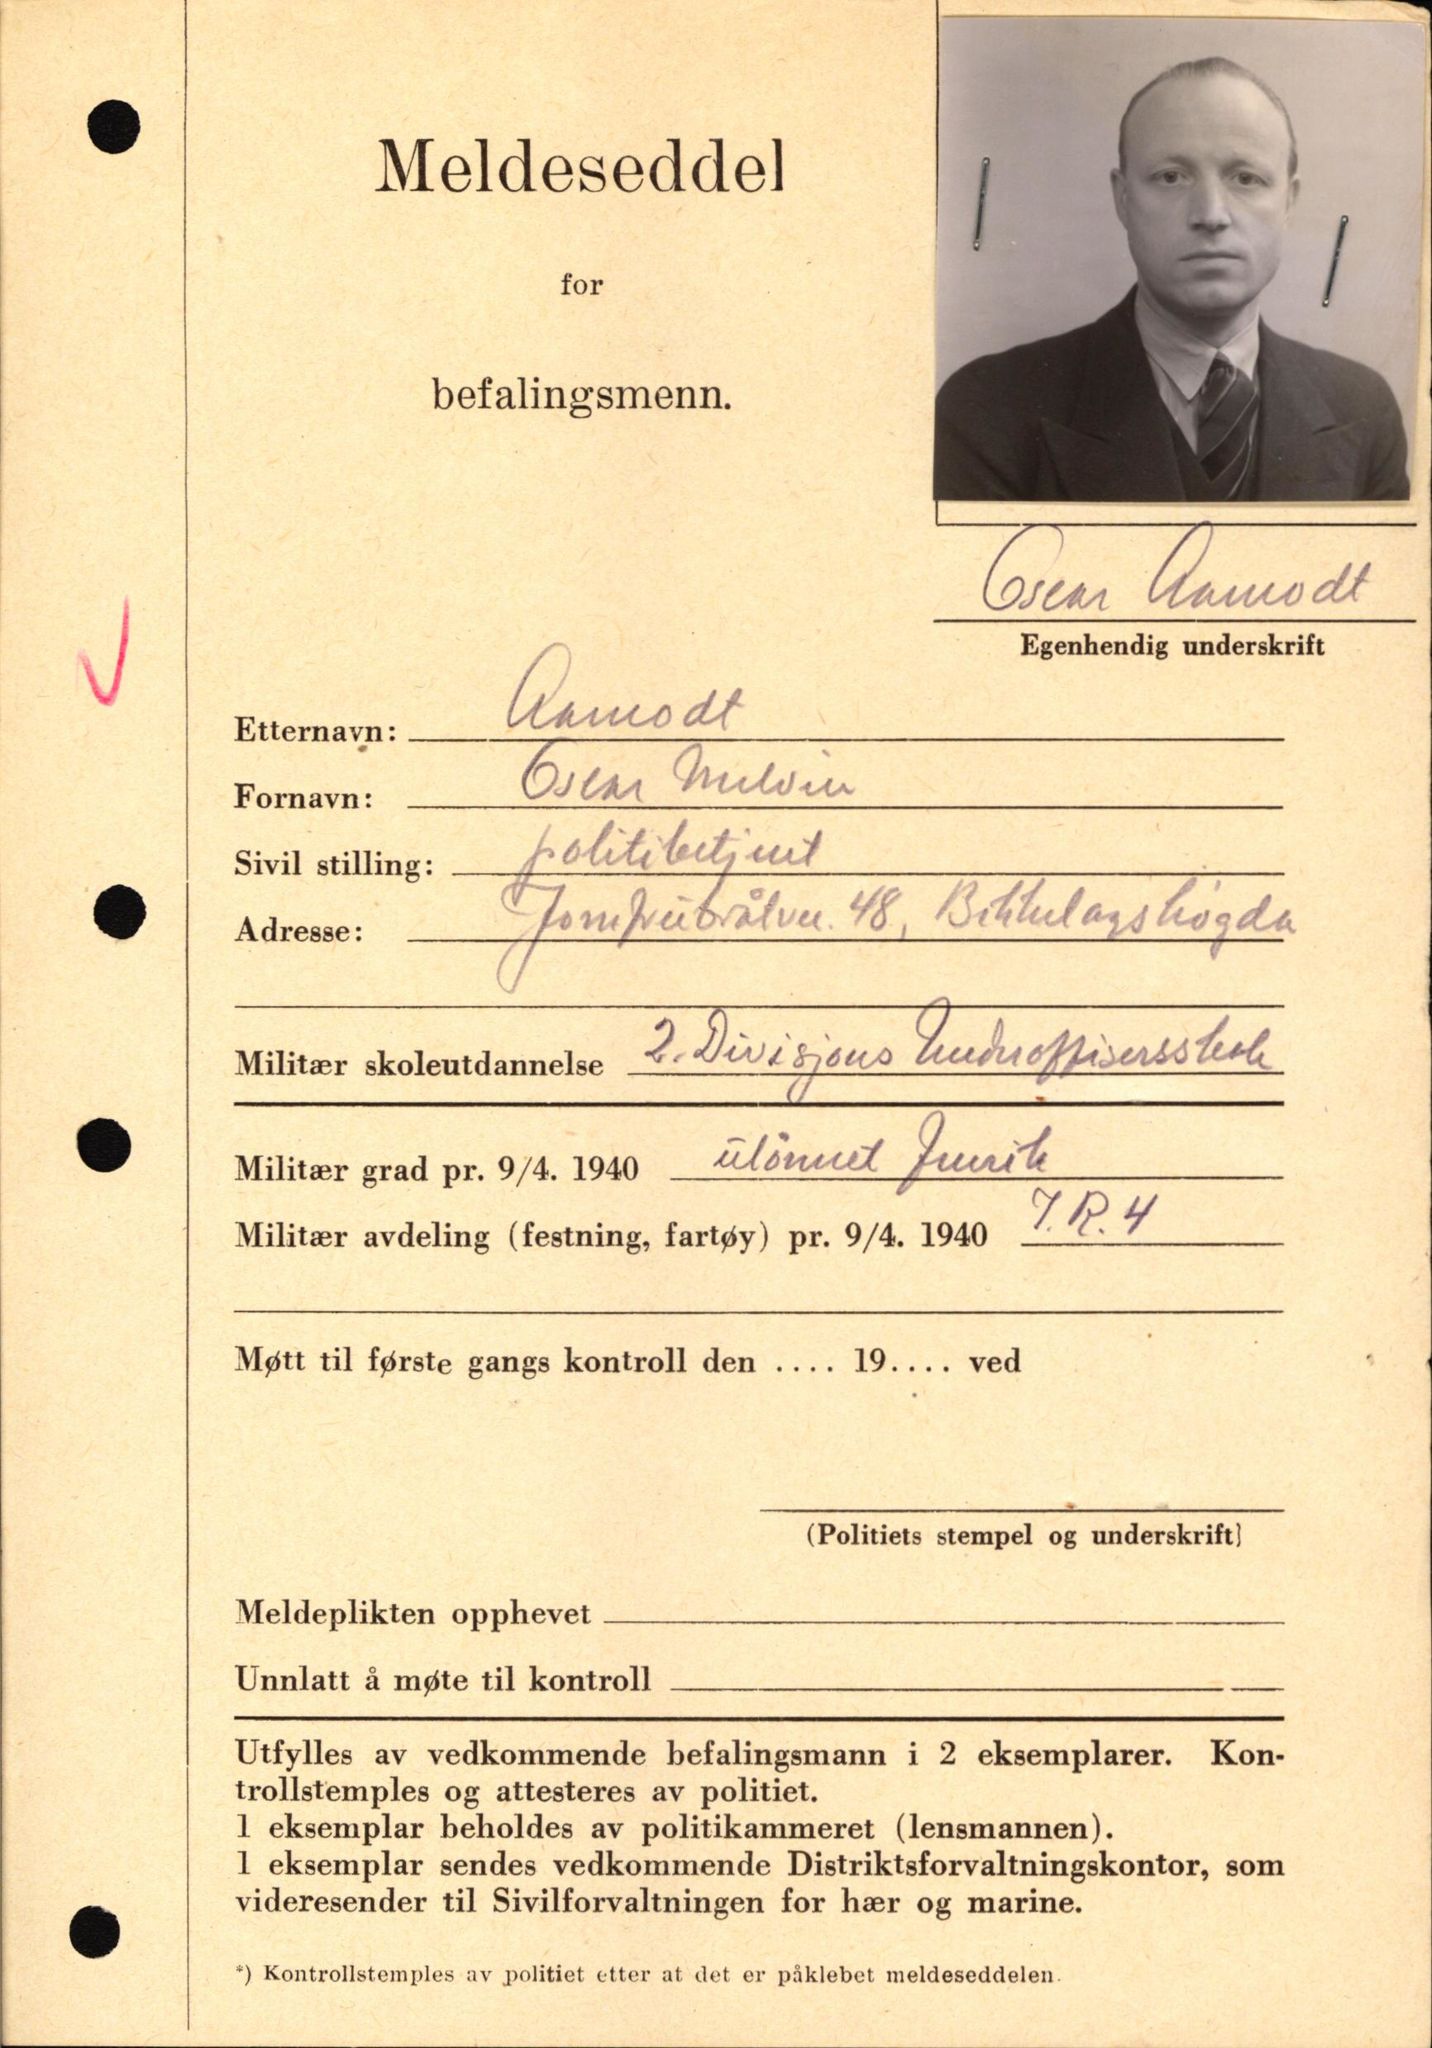 Meldeseddel
for
befalingsmenn.
Oscar Aamodt
Egenhendig underskrift
Etternavn: Aamodt
Fornavn: Oscar Melvin
Sivil stilling: politibetjent
Adresse: Jomfrubråtvn. 48, Bekkelagshøgda
Militær skoleutdannelse 2. Divisjons Underoffisersskole
Militær grad pr. 9/4. 1940 ulönnet Fenrik
Militær avdeling (festning, fartøy) pr. 9/4. 1940 I.R.4
Møtt til første gangs kontroll den .... 19.... ved
(Politiets stempel og underskrift)
Meldeplikten opphevet
Unnlatt å møte til kontroll
Utfylles av vedkommende befalingsmann i 2 eksemplarer. Kon-
trollstemples og attesteres av politiet.
1 eksemplar beholdes av politikammeret (lensmannen).
1 eksemplar sendes vedkommende Distriktsforvaltningskontor, som
videresender til Sivilforvaltningen for hær og marine.
*) Kontrollstemples av politiet etter at det er påklebet meldeseddelen.